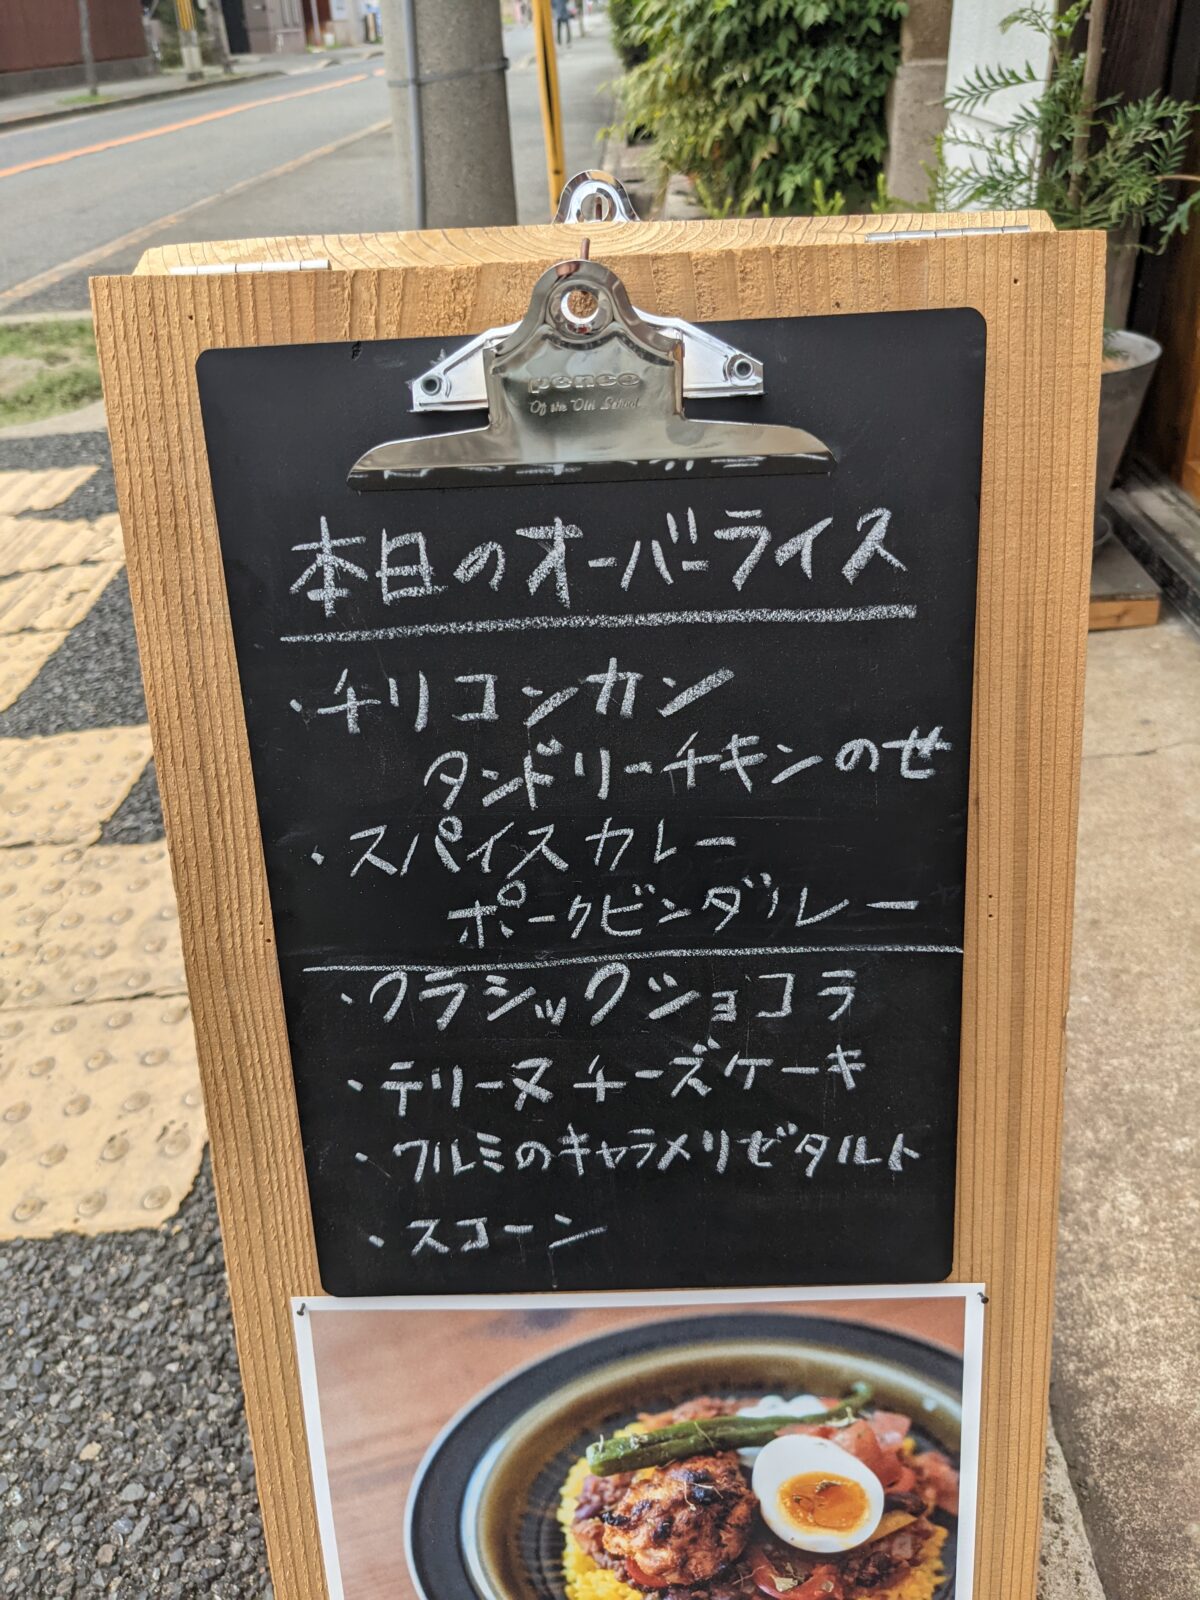 penco
Of the Old School
本日のオーバーライス
・チリコンカン
タンドリーチキンのせ
・スパイスカレー
ポークビンダルー
・クラシックショコラ
・テリーヌチーズケーキ
・クルミのキャラメリゼタルト
・スコーン